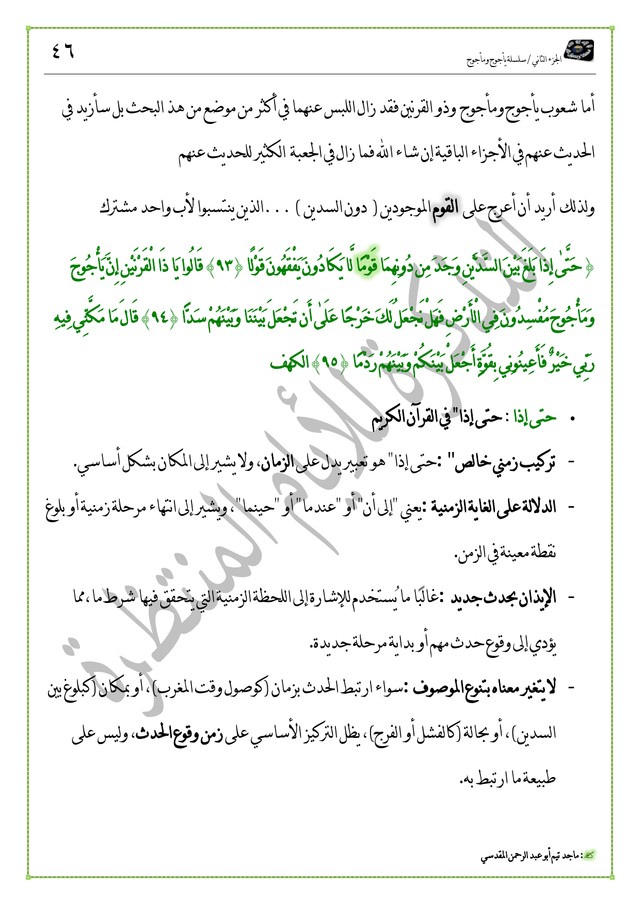 الجزء الثاني / سلسلة يأجوج ومأجوج
٤٦
أما شعوب يأجوج ومأجوج وذو القرنين فقد زال اللبس عنهما في أكثر من موضع من هذ البحث بل سأزيد في
الحديث عنهم في الأجزاء الباقية إن شاء الله فما زال في الجعبة الكثير للحديث عنهم
ولذلك أريد أن أعرج على القوم الموجودين ( دون السدين ) ... الذين ينتسبوا لأب واحد مشترك
﴿ حَتَّىٰ إِذَا بَلَغَ بَيْنَ السَّدَّيْنِ وَجَدَ مِن دُونِهِمَا قَوْمًا لَّا يَكَادُونَ يَفْقَهُونَ قَوْلًا ﴿٩٣﴾ قَالُوا يَا ذَا الْقَرْنَيْنِ إِنَّ يَأْجُوجَ
وَمَأْجُوجَ مُفْسِدُونَ فِي الْأَرْضِ فَهَلْ نَجْعَلُ لَكَ خَرْجًا عَلَىٰ أَن تَجْعَلَ بَيْنَنَا وَبَيْنَهُمْ سَدًّا ﴿٩٤﴾ قَالَ مَا مَكَّنِّي فِيهِ
رَبِّي خَيْرٌ فَأَعِينُونِي بِقُوَّةٍ أَجْعَلْ بَيْنَكُمْ وَبَيْنَهُمْ رَدْمًا ﴿٩٥﴾ الكهف
• حتى إذا : حتى إذا" في القرآن الكريم
- تركيب زمني خالص" :حتى إذا" هو تعبير يدل على الزمان، ولا يشير إلى المكان بشكل أساسي.
- الدلالة على الغاية الزمنية :يعني "إلى أن" أو "عندما" أو "حينما"، ويشير إلى انتهاء مرحلة زمنية أو بلوغ
نقطة معينة في الزمن.
- الإيذان بحدث جديد :غالبًا ما يُستخدم للإشارة إلى اللحظة الزمنية التي يتحقق فيها شرط ما، مما
يؤدي إلى وقوع حدث مهم أو بداية مرحلة جديدة.
- لا يتغير معناه بتنوع الموصوف :سواء ارتبط الحدث بزمان (كوصول وقت المغرب)، أو بمكان (كبلوغ بين
السدين)، أو بحالة (كالفشل أو الفرج)، يظل التركيز الأساسي على زمن وقوع الحدث، وليس على
طبيعة ما ارتبط به.
التذكرة للأيام المنتظرة
: ماجد تيم أبو عبد الرحمن المقدسي